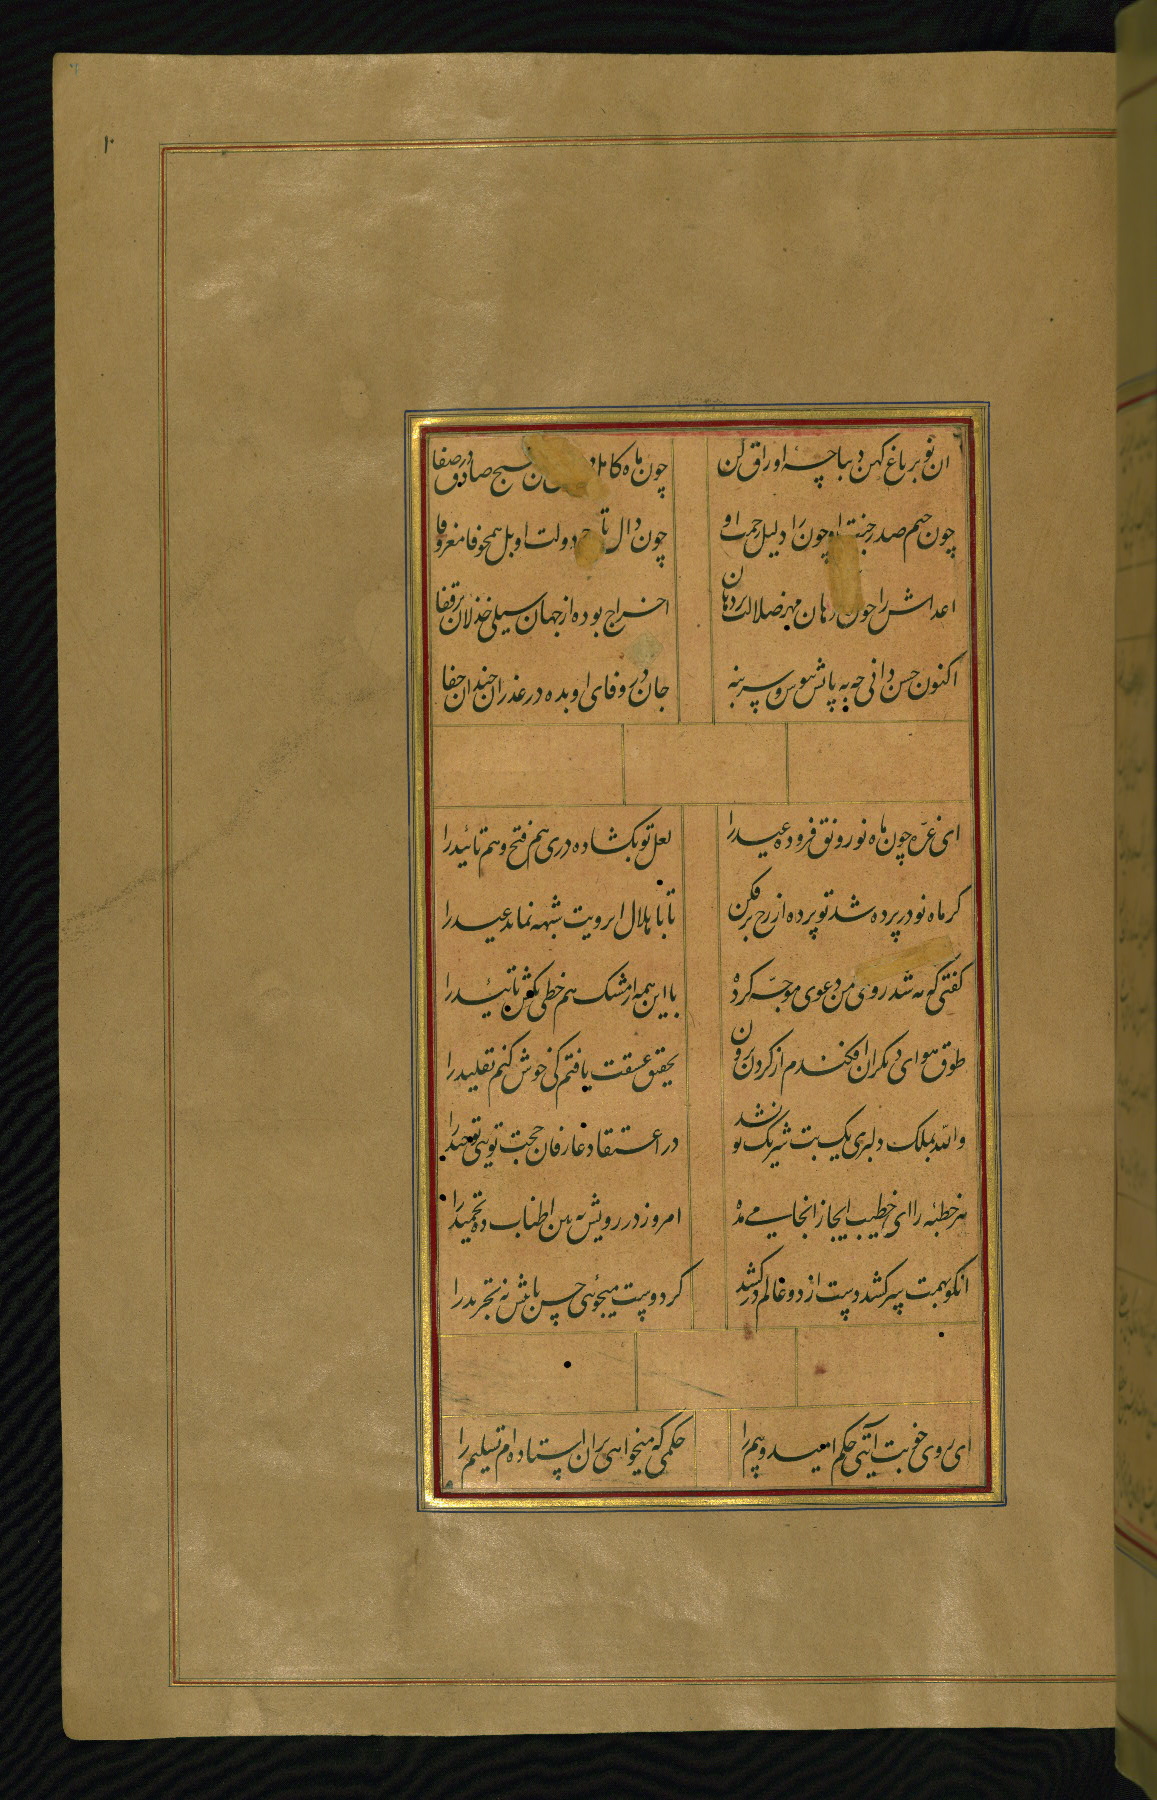 ۱۰
ان نوبر باغ کهن دیباچهٔ اوراق لن چون ماه کامل صبح صادق در صفا
چون جیم صدر جنت او چون را دلیل رحمت او چون دال دولت او بل همچو فا مغز وفا
اعداش را چون مهر ضلالت بر دهان اخراج بوده از جهان سیلی خذلان بر قفا
اکنون حسن دانی چه به پاش بوس و سر بنه جان در وفای او بده در عذر ان چندان جفا
ای غرّه چون ماه نو رونق فزوده عید را لعل تو بکشاده دری هم فتح و هم تائید را
کر ماه نو در پرده شد تو پرده از رخ بر فکن تا با هلال ابرویت شبهه نماند عید را
کفتی که مه شد روی من دعوی موجّه کرده با این همه از مشک هم خطی بکش تائید را
طوق هوای دیکران افکندم از کردن برون تحقیق عشقت یافتم کی خوش کنم تقلید را
والله بملک دلبری یک بت شریک تو نشد در اعتقاد عارفان حجت تویی توحید را
هر خطبهٔ را ای خطیب ایجاز انجا می مده امروز در رویش به بین اطناب ده تحمید را
انکو بهمت سر کشد دست از دو عالم در کشد کر دوست میجوئی حسن باش نه تجرید را
ای بروی خوبت ایتی حکم امید و بیم را حکمی که میخواهی بران استاده ام تسلیم را